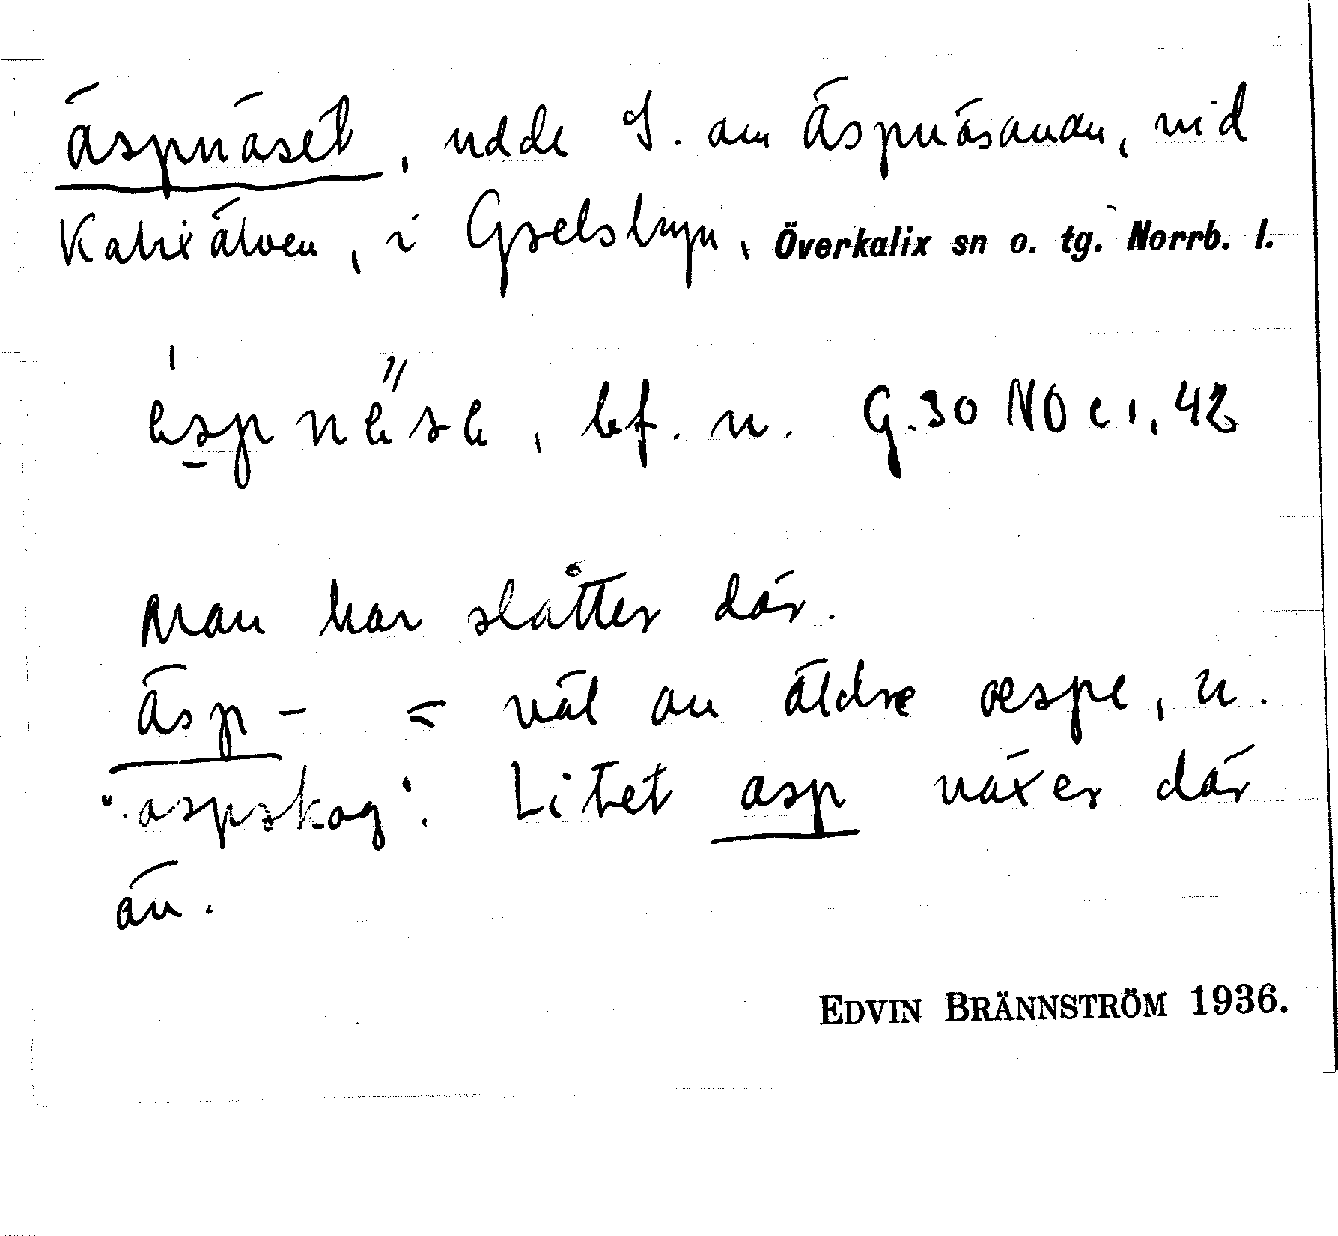 Äspnäset, udde S. om Äspnäsanan, vid
Kalixälven, i Gyselsbyn, Överkalix sn o. tg. Norrb. l.
bf. n. G.30 NO e 1, 42
Man har slåtter där.
Äsp- = väl an äldre æspe, n.
"aspskog". Litet asp växer där
än.
EDVIN BRÄNNSTRÖM 1936.